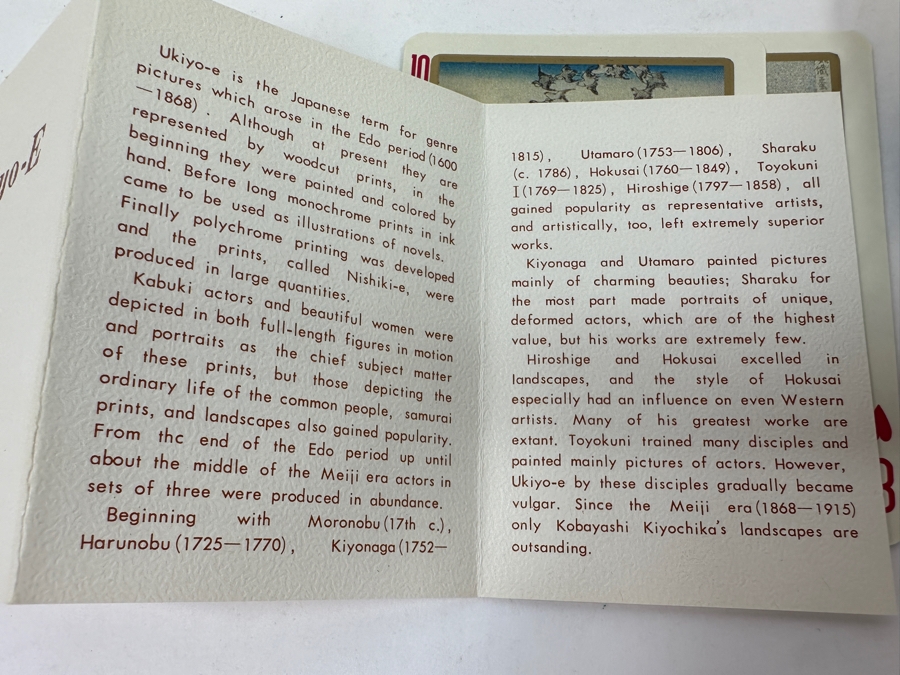 yo-E
Ukiyo-e is the Japanese term for genre
pictures which arose in the Edo period (1600
—1868). Although at present they are
represented by woodcut prints, in the
beginning they were painted and colored by
hand. Before long monochrome prints in ink
came to be used as illustrations of novels.
Finally polychrome printing was developed
and the prints, called Nishiki-e, were
produced in large quantities.
Kabuki actors and beautiful women were
depicted in both full-length figures in motion
and portraits as the chief subject matter
of these prints, but those depicting the
ordinary life of the common people, samurai
prints, and landscapes also gained popularity.
From thc end of the Edo period up until
about the middle of the Meiji era actors in
sets of three were produced in abundance.
Beginning with Moronobu (17th c.),
Harunobu (1725—1770), Kiyonaga (1752—
1815), Utamaro (1753—1806), Sharaku
(c. 1786), Hokusai (1760—1849), Toyokuni
I (1769—1825), Hiroshige (1797—1858), all
gained popularity as representative artists,
and artistically, too, left extremely superior
works.
Kiyonaga and Utamaro painted pictures
mainly of charming beauties; Sharaku for
the most part made portraits of unique,
deformed actors, which are of the highest
value, but his works are extremely few.
Hiroshige and Hokusai excelled in
landscapes, and the style of Hokusai
especially had an influence on even Western
artists. Many of his greatest worke are
extant. Toyokuni trained many disciples and
painted mainly pictures of actors. However,
Ukiyo-e by these disciples gradually became
vulgar. Since the Meiji era (1868—1915)
only Kobayashi Kiyochika's landscapes are
outsanding.
10